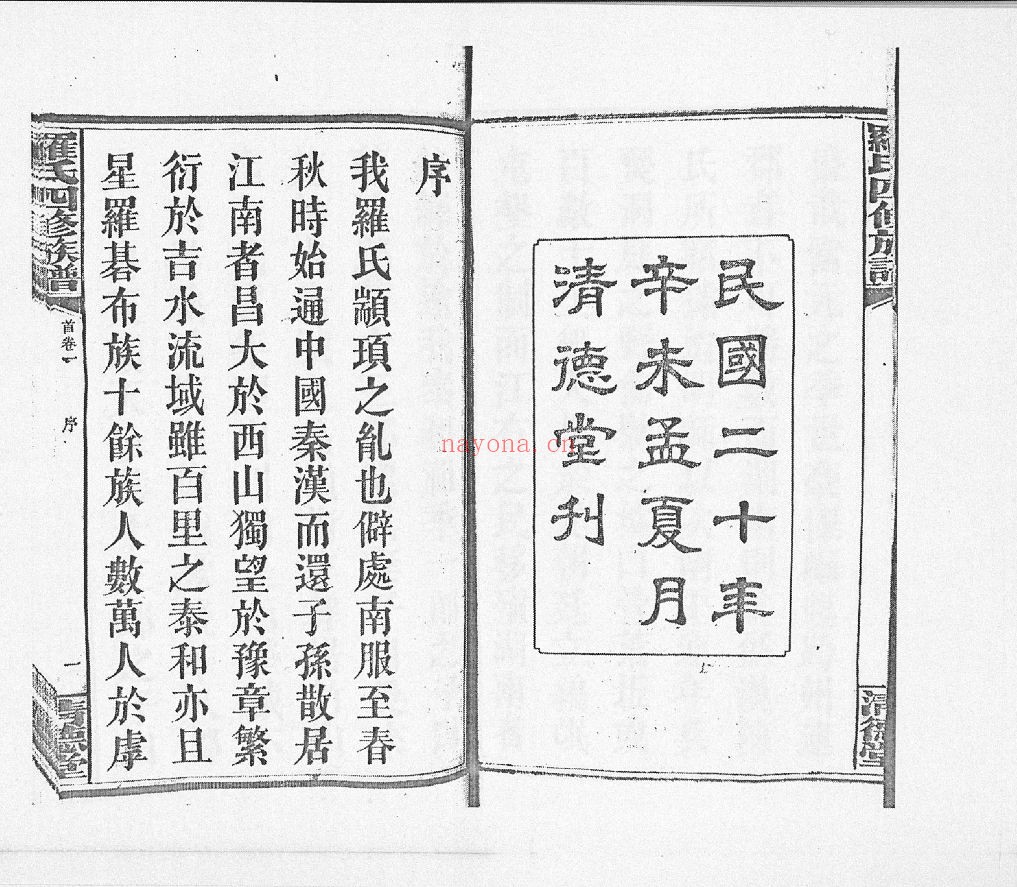 羅氏四修族譜
清德堂
民國二十年
辛未孟夏月
清德堂刋
序
我羅氏顓頊之亂也僻處南服至春
秋時始通中國秦漢而還子孫散居
江南者昌大於西山獨望於豫章繁
衍於吉水流域雖百里之泰和亦且
星羅碁布族十餘族人數萬人於虖
羅氏四修族譜
首卷
序
一
清德堂
nayona.cn